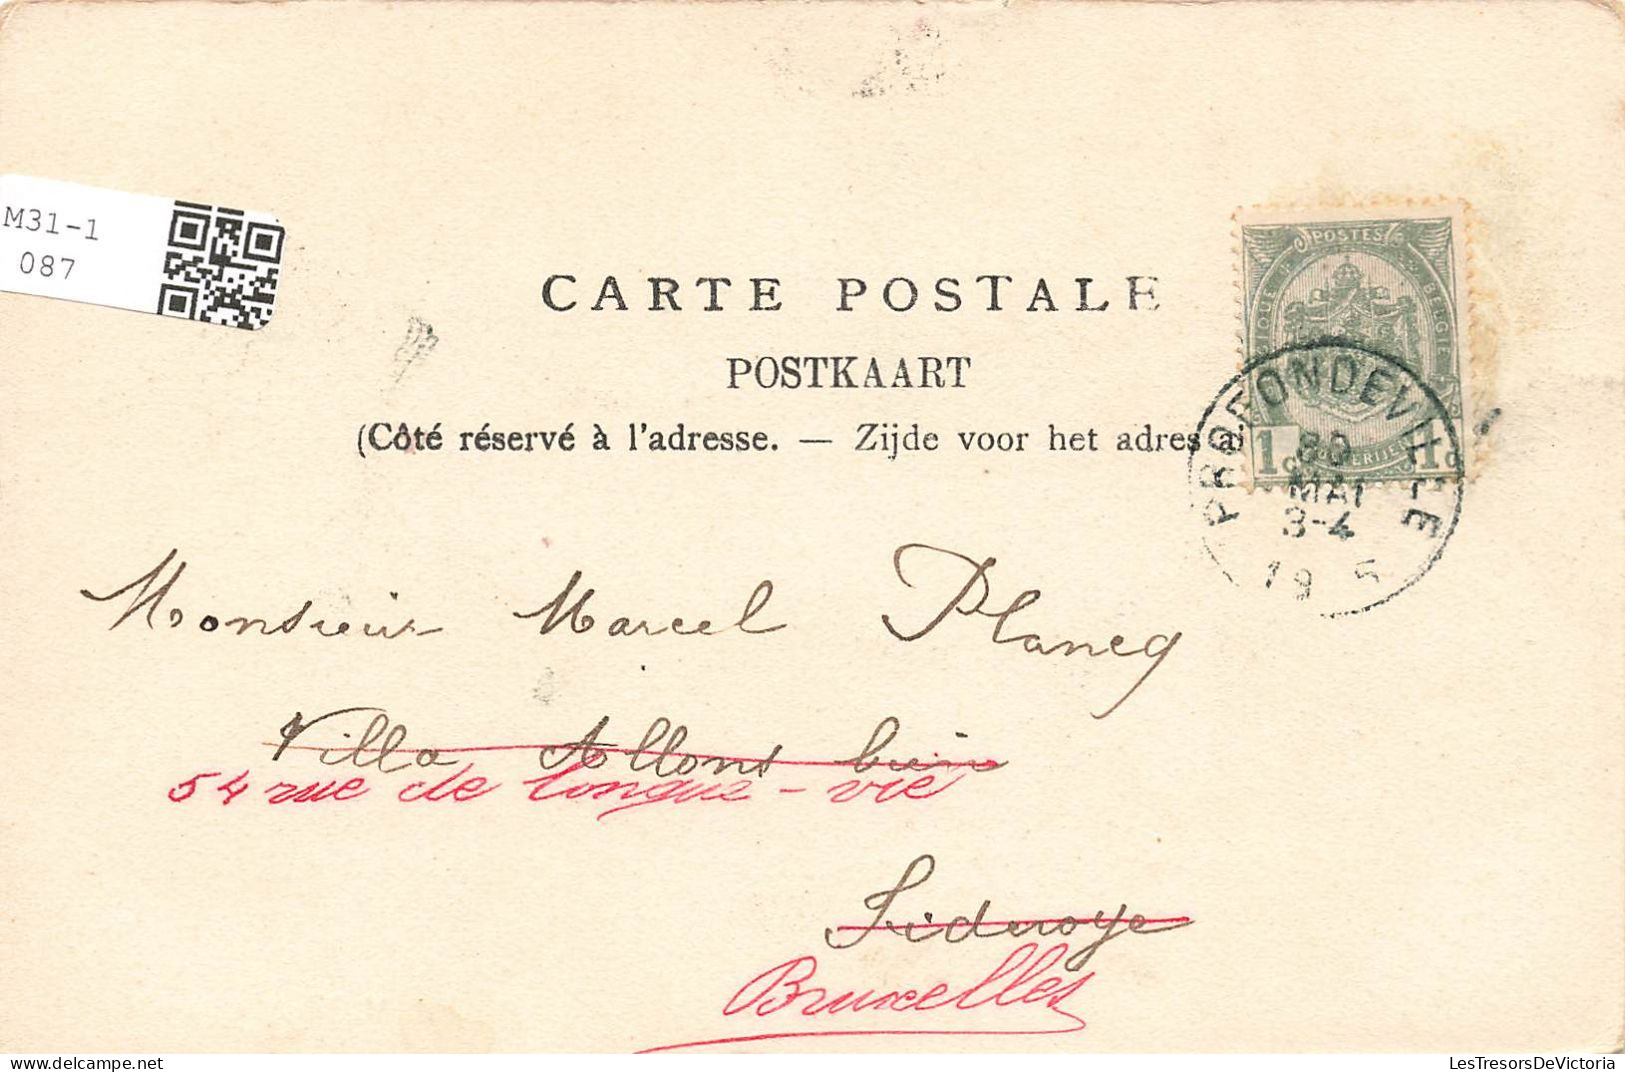 M31-1
087
CARTE POSTALE
POSTKAART
(Côté réservé à l'adresse. — Zijde voor het adres a
POSTES
BELGIQUE BELGIE
1c 1c
PROFONDEVILLE
30
MAI
3-4
19 5
Monsieur Marcel Plancq
Villa Allons bien
54 rue de longue-vie
Bruxelles
LesTresorsDeVictoria